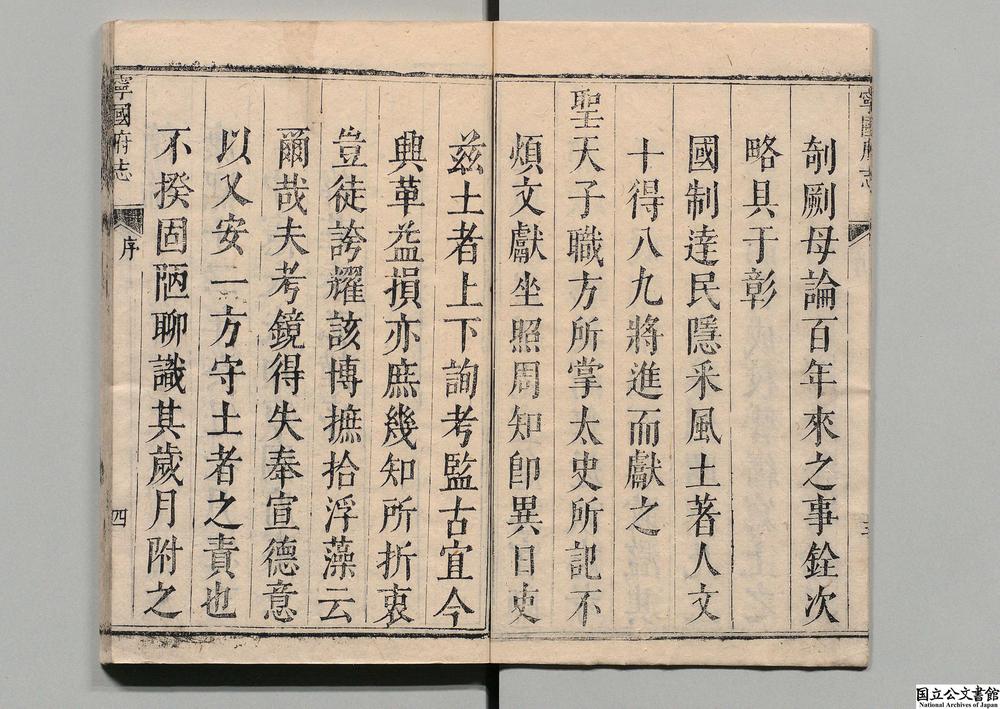 寧國府志
剞劂毋論百年來之事銓次
略具于彰
國制達民隱釆風土著人文
十得八九將進而獻之
聖天子職方所掌太史所記不
煩文獻坐照周知卽異日吏
茲土者上下詢考監古宜今
興革益損亦庶幾知所折衷
豈徒誇耀該博摭拾浮藻云
爾哉夫考鏡得失奉宣德意
以乂安一方守土者之責也
不揆固陋聊識其歲月附之
寧國府志
序
四
国立公文書館
National Archives of Japan